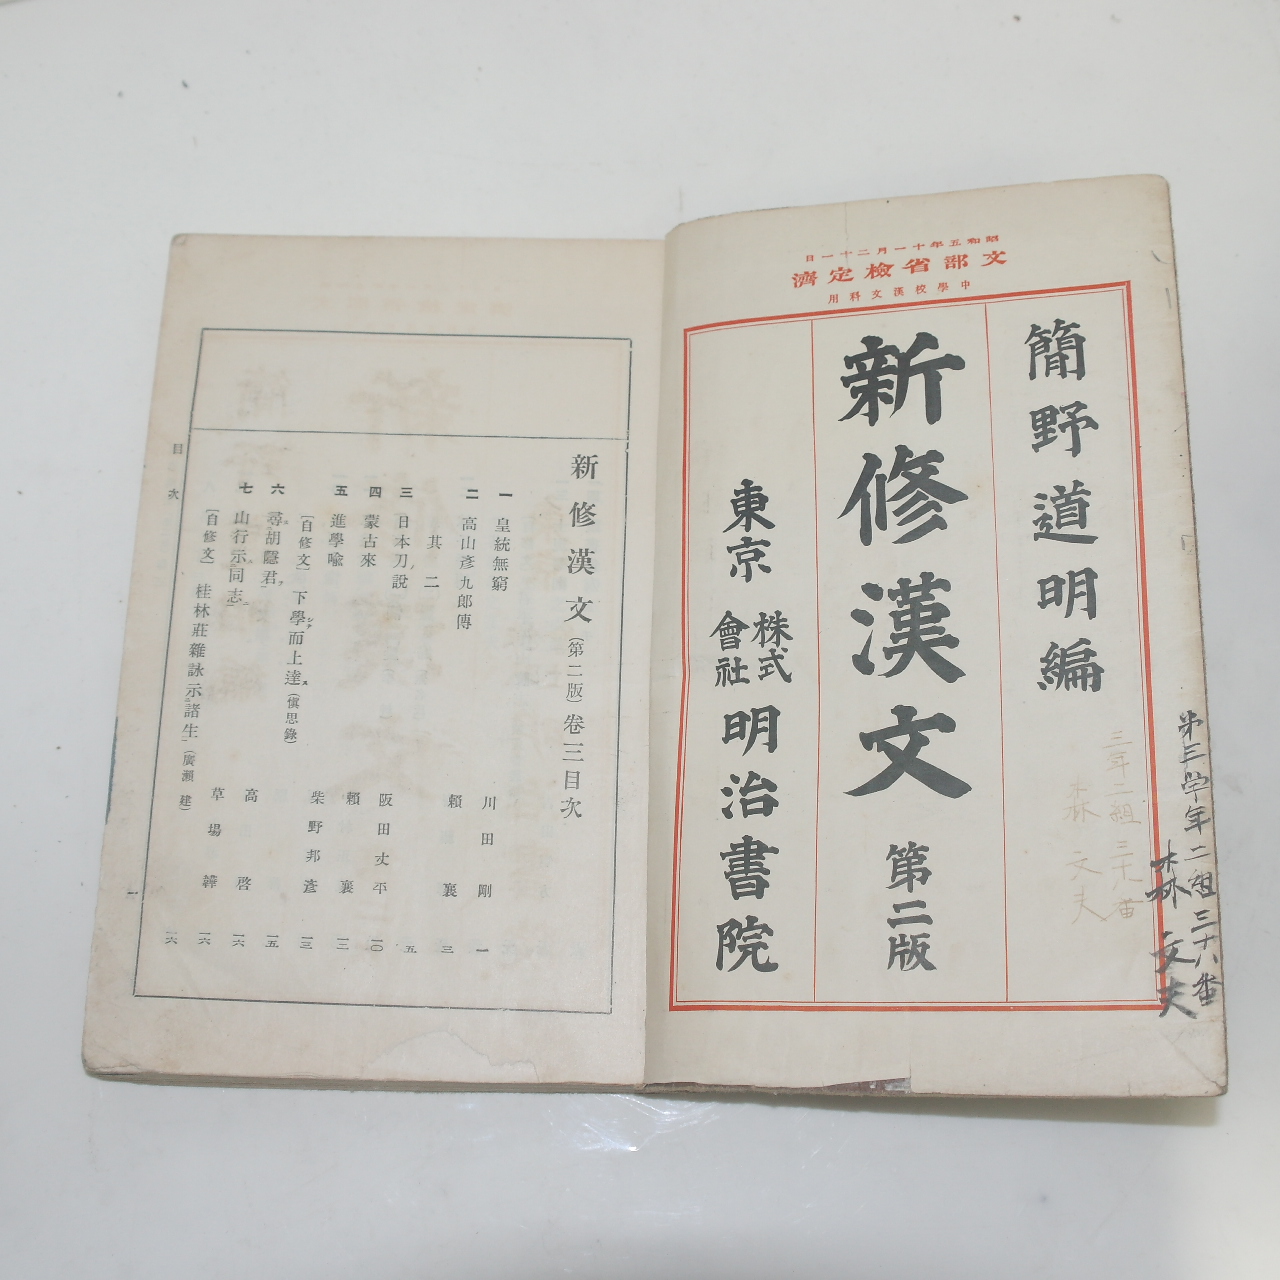 昭和五年十一月二十一日
文部省檢定濟
中學校漢文科用
簡野道明編
新修漢文 第二版
東京 株式會社 明治書院
第三学年二組三十八番
森文夫
三年二組三十八番
森文夫
新修漢文(第二版)卷三目次
一 皇統無窮 川田剛 一
二 高山彥九郎傳 賴襄 三
其二 五
三 日本刀說 阪田丈平 一〇
四 蒙古來 賴襄 一二
五 進學喩 柴野邦彥 一三
〔自修文〕下學而上達(愼思錄) 一五
六 尋胡隱君 高啓 一六
七 山行示同志 草場韡 一六
〔自修文〕桂林莊雜詠示諸生(廣瀨建) 一六
目次
一